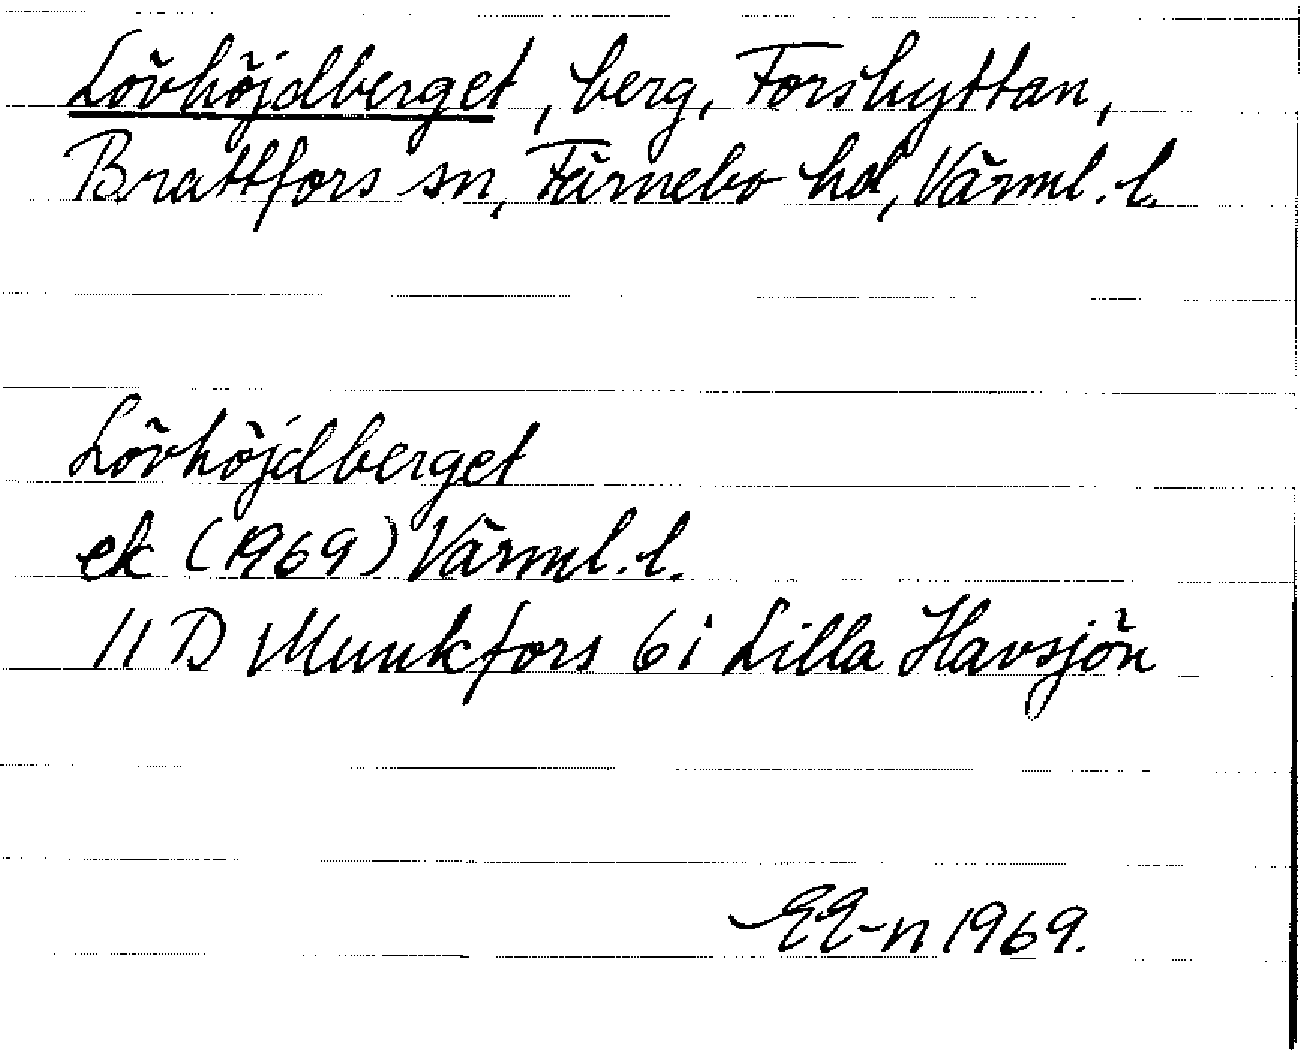 Lövhöjdberget, berg, Forshyttan,
Brattfors sn, Färnebo hd, Värml. l.
Lövhöjdberget
ek (1969) Värml. l.
11 D Munkfors 6 i Lilla Havsjön
EE-n 1969.